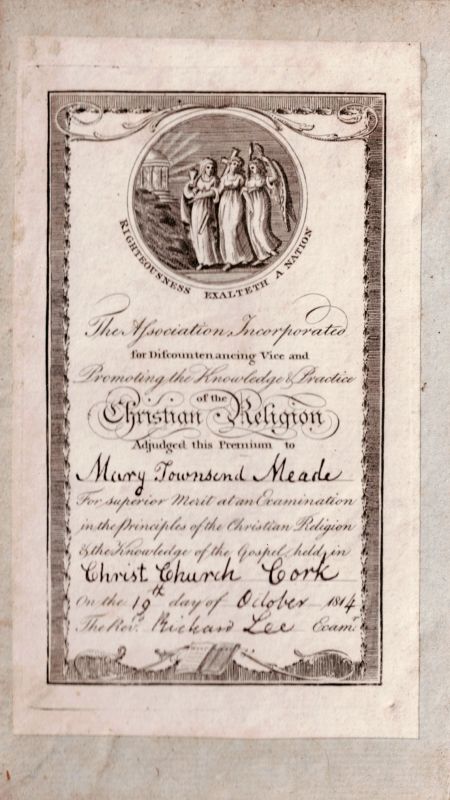 RIGHTEOUSNESS EXALTETH A NATION
The Aſsociation Incorporated
for Diſcountenancing Vice and
Promoting the Knowledge & Practice
of the
Christian Religion
Adjudged this Premium to
Mary Townsend Meade
For superior Merit at an Examination
in the Principles of the Christian Religion
& the Knowledge of the Gospel, held in
Christ Church Cork
On the 19th day of October 1814
The Revd. Richard Lee Examr.